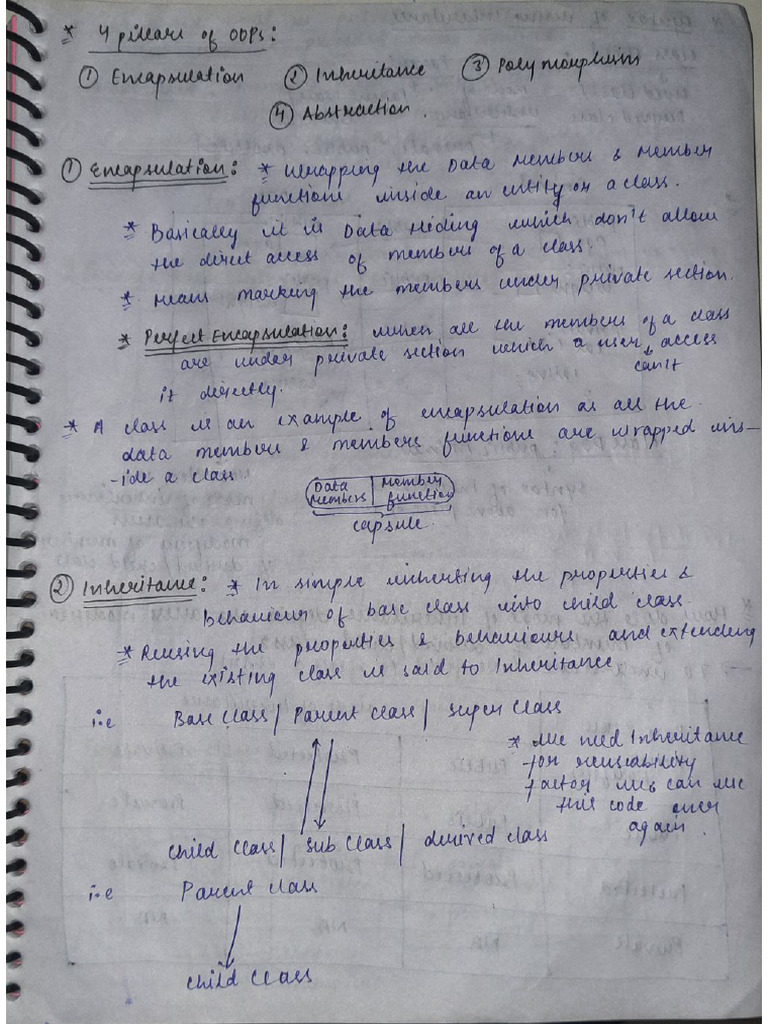 * 4 pillars of OOPs:
① Encapsulation ② Inheritance ③ Polymorphism
④ Abstraction.
① Encapsulation: * Wrapping the Data Members & Member
functions inside an entity or a class.
* Basically it is Data Hiding which don't allow
the direct access of members of a class.
* Means marking the members under private section.
* Perfect Encapsulation: when all the members of a class
are under private section which a user access
can't
it directly.
* A class is an example of encapsulation as all the
data members & members functions are wrapped ins-
-ide a class
Data | Member
Members | function
capsule.
② Inheritance: * In simple inheriting the properties &
behaviour of base class into child class.
* Reusing the properties & behaviours and extending
the existing class is said to Inheritance
i.e Base Class / Parent Class / Super Class
* we need Inheritance
for reuseability
factor we can use
this code over
again.
Child Class / Sub Class / derived class
i.e Parent class
child class